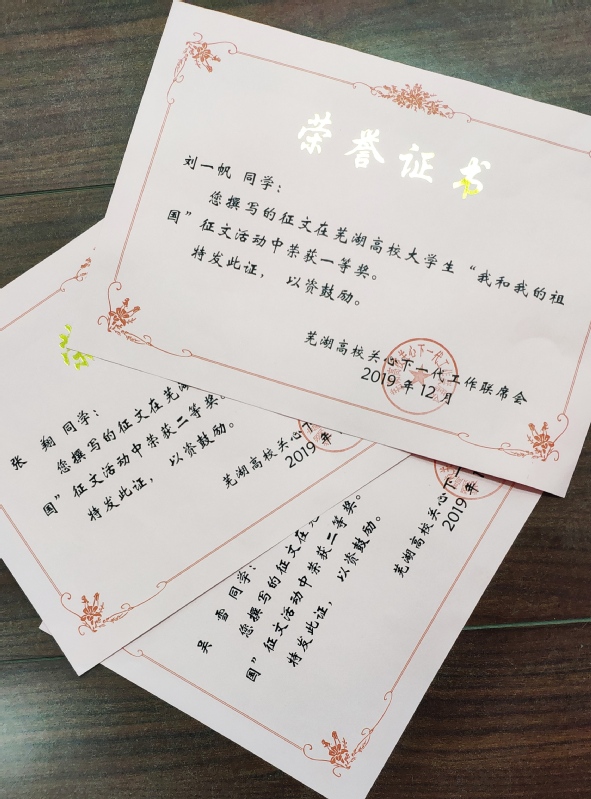 荣誉证书
刘一帆 同学：
您撰写的征文在芜湖高校大学生“我和我的祖
国”征文活动中荣获一等奖。
特发此证， 以资鼓励。
芜湖高校关心下一代工作联席会
2019 年 12 月
张 翔 同学：
您撰写的征文在芜湖
国”征文活动中荣获二等奖。
特发此证， 以资鼓励。
芜湖高校关心下
2019 年
吴 雪 同学：
您撰写的征文在
国”征文活动中荣获二等奖。
特发此证， 以资鼓励。
芜湖高校关心下一
2019 年